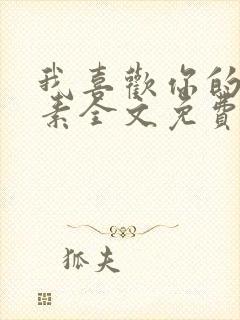 我喜歡你的
素全文免費
狐夫